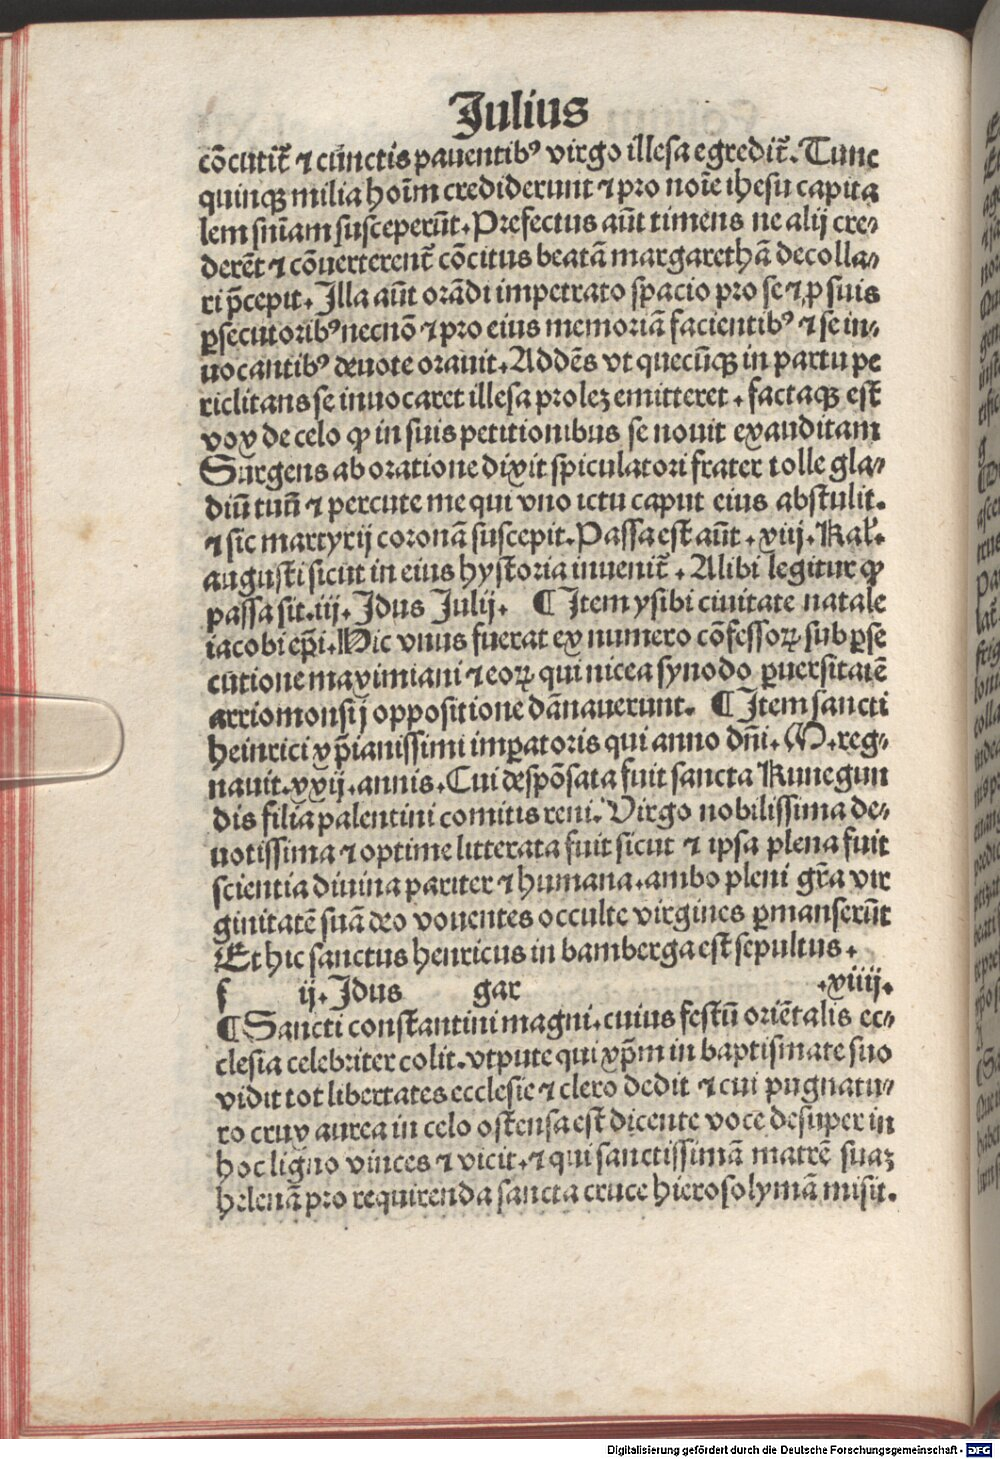 Julius
cōcutit᷑ ⁊ cūnctis pauentibꝰ virgo illesa egredit᷑. Tunc
quinqꝫ milia hoīm crediderunt ⁊ pro noīe ihesu capita
lem sniam susceperūt. Prefectus aūt timens ne alij cre⸗
derēt ⁊ cōuerterent᷑ cōcitus beatā margarethā decolla⸗
ri p̄cepit. Illa aūt orādi impetrato spacio pro se ⁊ ꝓ suis
ꝑsecutoribꝰ necnō ⁊ pro eius memoriā facientibꝰ ⁊ se in⸗
uocantibꝰ deuote orauit. Addēs vt quecūqꝫ in partu pe
riclitans se inuocaret illesa prolez emitteret. factaqꝫ est
vox de celo ꝙ in suis petitionibus se nouit exauditam
Surgens ab oratione dixit spiculatori frater tolle gla⸗
diū tuū ⁊ percute me qui vno ictu caput eius abstulit.
⁊ sic martyrij coronā suscepit. Passa est aūt. xiij. Kal̓.
augusti sicut in eius hystoria inuenit᷑. Alibi legitur ꝙ
passa sit. iij. Idus Julij. ¶ Item ysibi ciuitate natale
iacobi ep̄i. Hic vnus fuerat ex numero cōfessoꝝ sub ꝑse
cutione maximiani ⁊ eoꝝ qui nicea synodo ꝑuersitatē
arriomonsij oppositione dānauerunt. ¶ Item sancti
heinrici xp̄ianissimi imꝑatoris qui anno dn̄i. M. reg⸗
nauit. xxij. annis. Cui despōsata fuit sancta Kunegun
dis filia palentini comitis reni. Virgo nobilissima de⸗
uotissima ⁊ optime litterata fuit sicut ⁊ ipsa plena fuit
scientia diuina pariter ⁊ humana. ambo pleni gr̄a vir
ginitatē suā deo vouentes occulte virgines ꝑmanserūt
Et hic sanctus henricus in bamberga est sepultus.
f ij. Idus gar .xiiij.
¶ Sancti constantini magni. cuius festū oriētalis ec⸗
clesia celebriter colit. vtpute qui xp̄m in baptismate suo
vidit tot libertates ecclesie ⁊ clero dedit ⁊ cui pugnatu⸗
ro crux aurea in celo ostensa est dicente voce desuper in
hoc ligno vinces ⁊ vicit. ⁊ qui sanctissimā matrē suaꝫ
helenā pro requirenda sancta cruce hierosolymā misit.
Digitalisierung gefördert durch die Deutsche Forschungsgemeinschaft - DFG